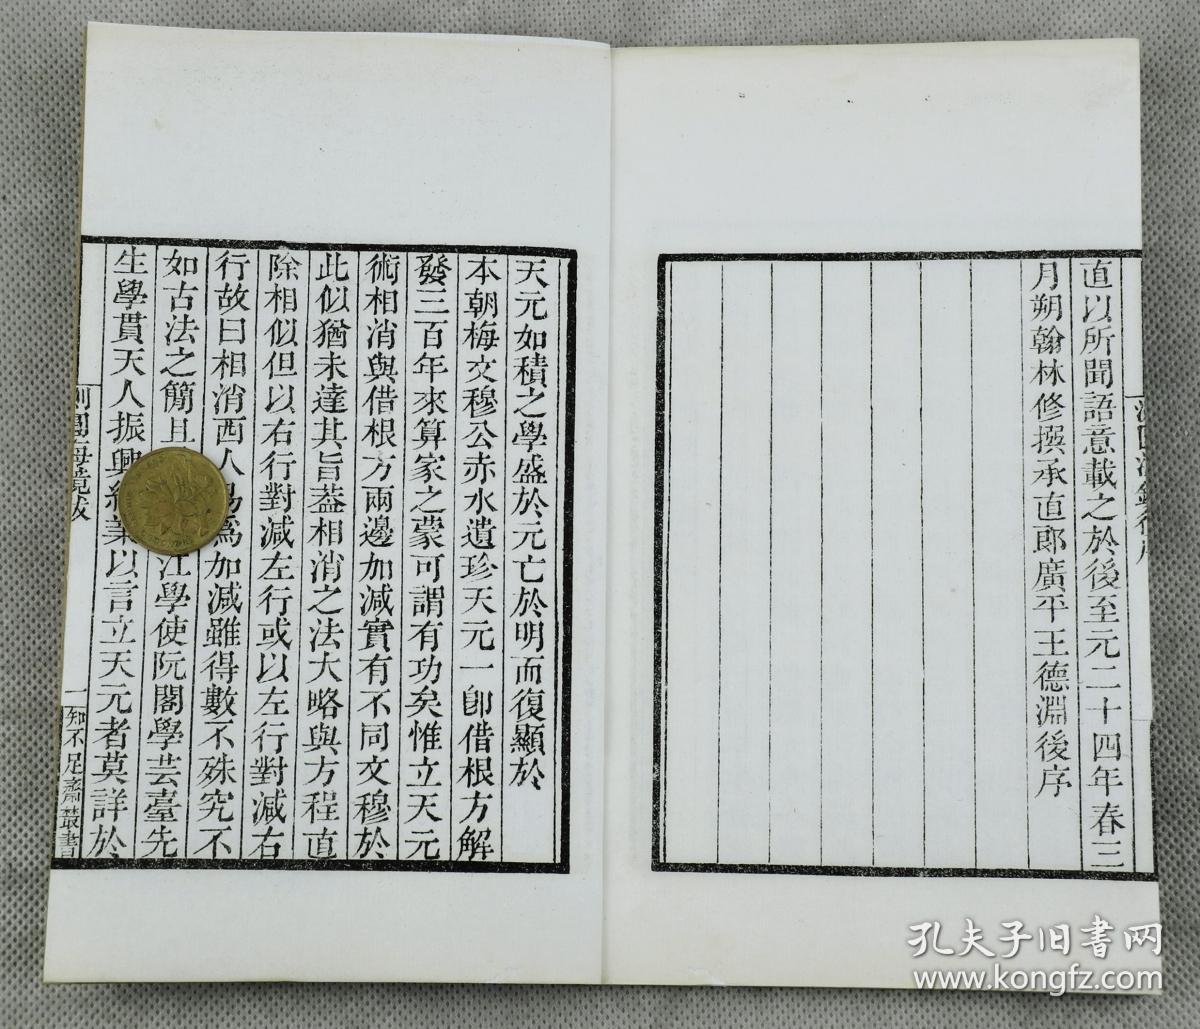 直以所聞語意載之於後至元二十四年春三
月朔翰林修撰承直郎廣平王德淵後序
天元如積之學盛於元亡於明而復顯於
本朝梅文穆公赤水遺珍天元一卽借根方解
發三百年來算家之蒙可謂有功矣惟立天元
術相消與借根方兩邊加減實有不同文穆於
此似猶未達其旨葢相消之法大略與方程直
除相似但以右行對減左行或以左行對減右
行故曰相消西人易爲加減雖得數不殊究不
如古法之簡且 江學使阮閣學芸臺先
生學貫天人振興絕業以言立天元者莫詳於
測圓海鏡跋
一
知不足齋叢書
孔夫子旧书网
www.kongfz.com